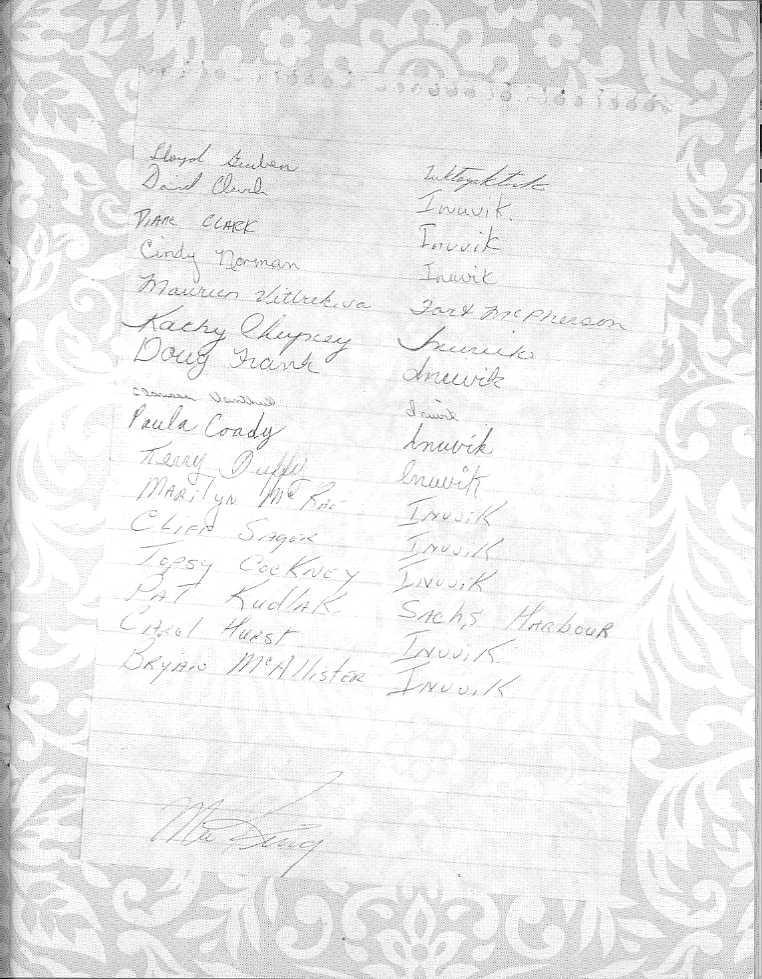 Lloyd Gruben Tuktoyaktuk
David Church Inuvik.
Diane CLARK Inuvik
Cindy Norman Inuvik
Maureen Vittrekwa Fort McPherson
Kathy Inuvik
Doug Frank Inuvik
Inuvik
Paula Coady Inuvik
Terry Duffy Inuvik
MARILYN McRAE INUVIK
CLIFF INUVIK
TOPSY COCKNEY INUVIK
PAT KUDLAK SACHS HARBOUR
CAROL HURST INUVIK.
BRYAN McALLISTER INUVIK
King